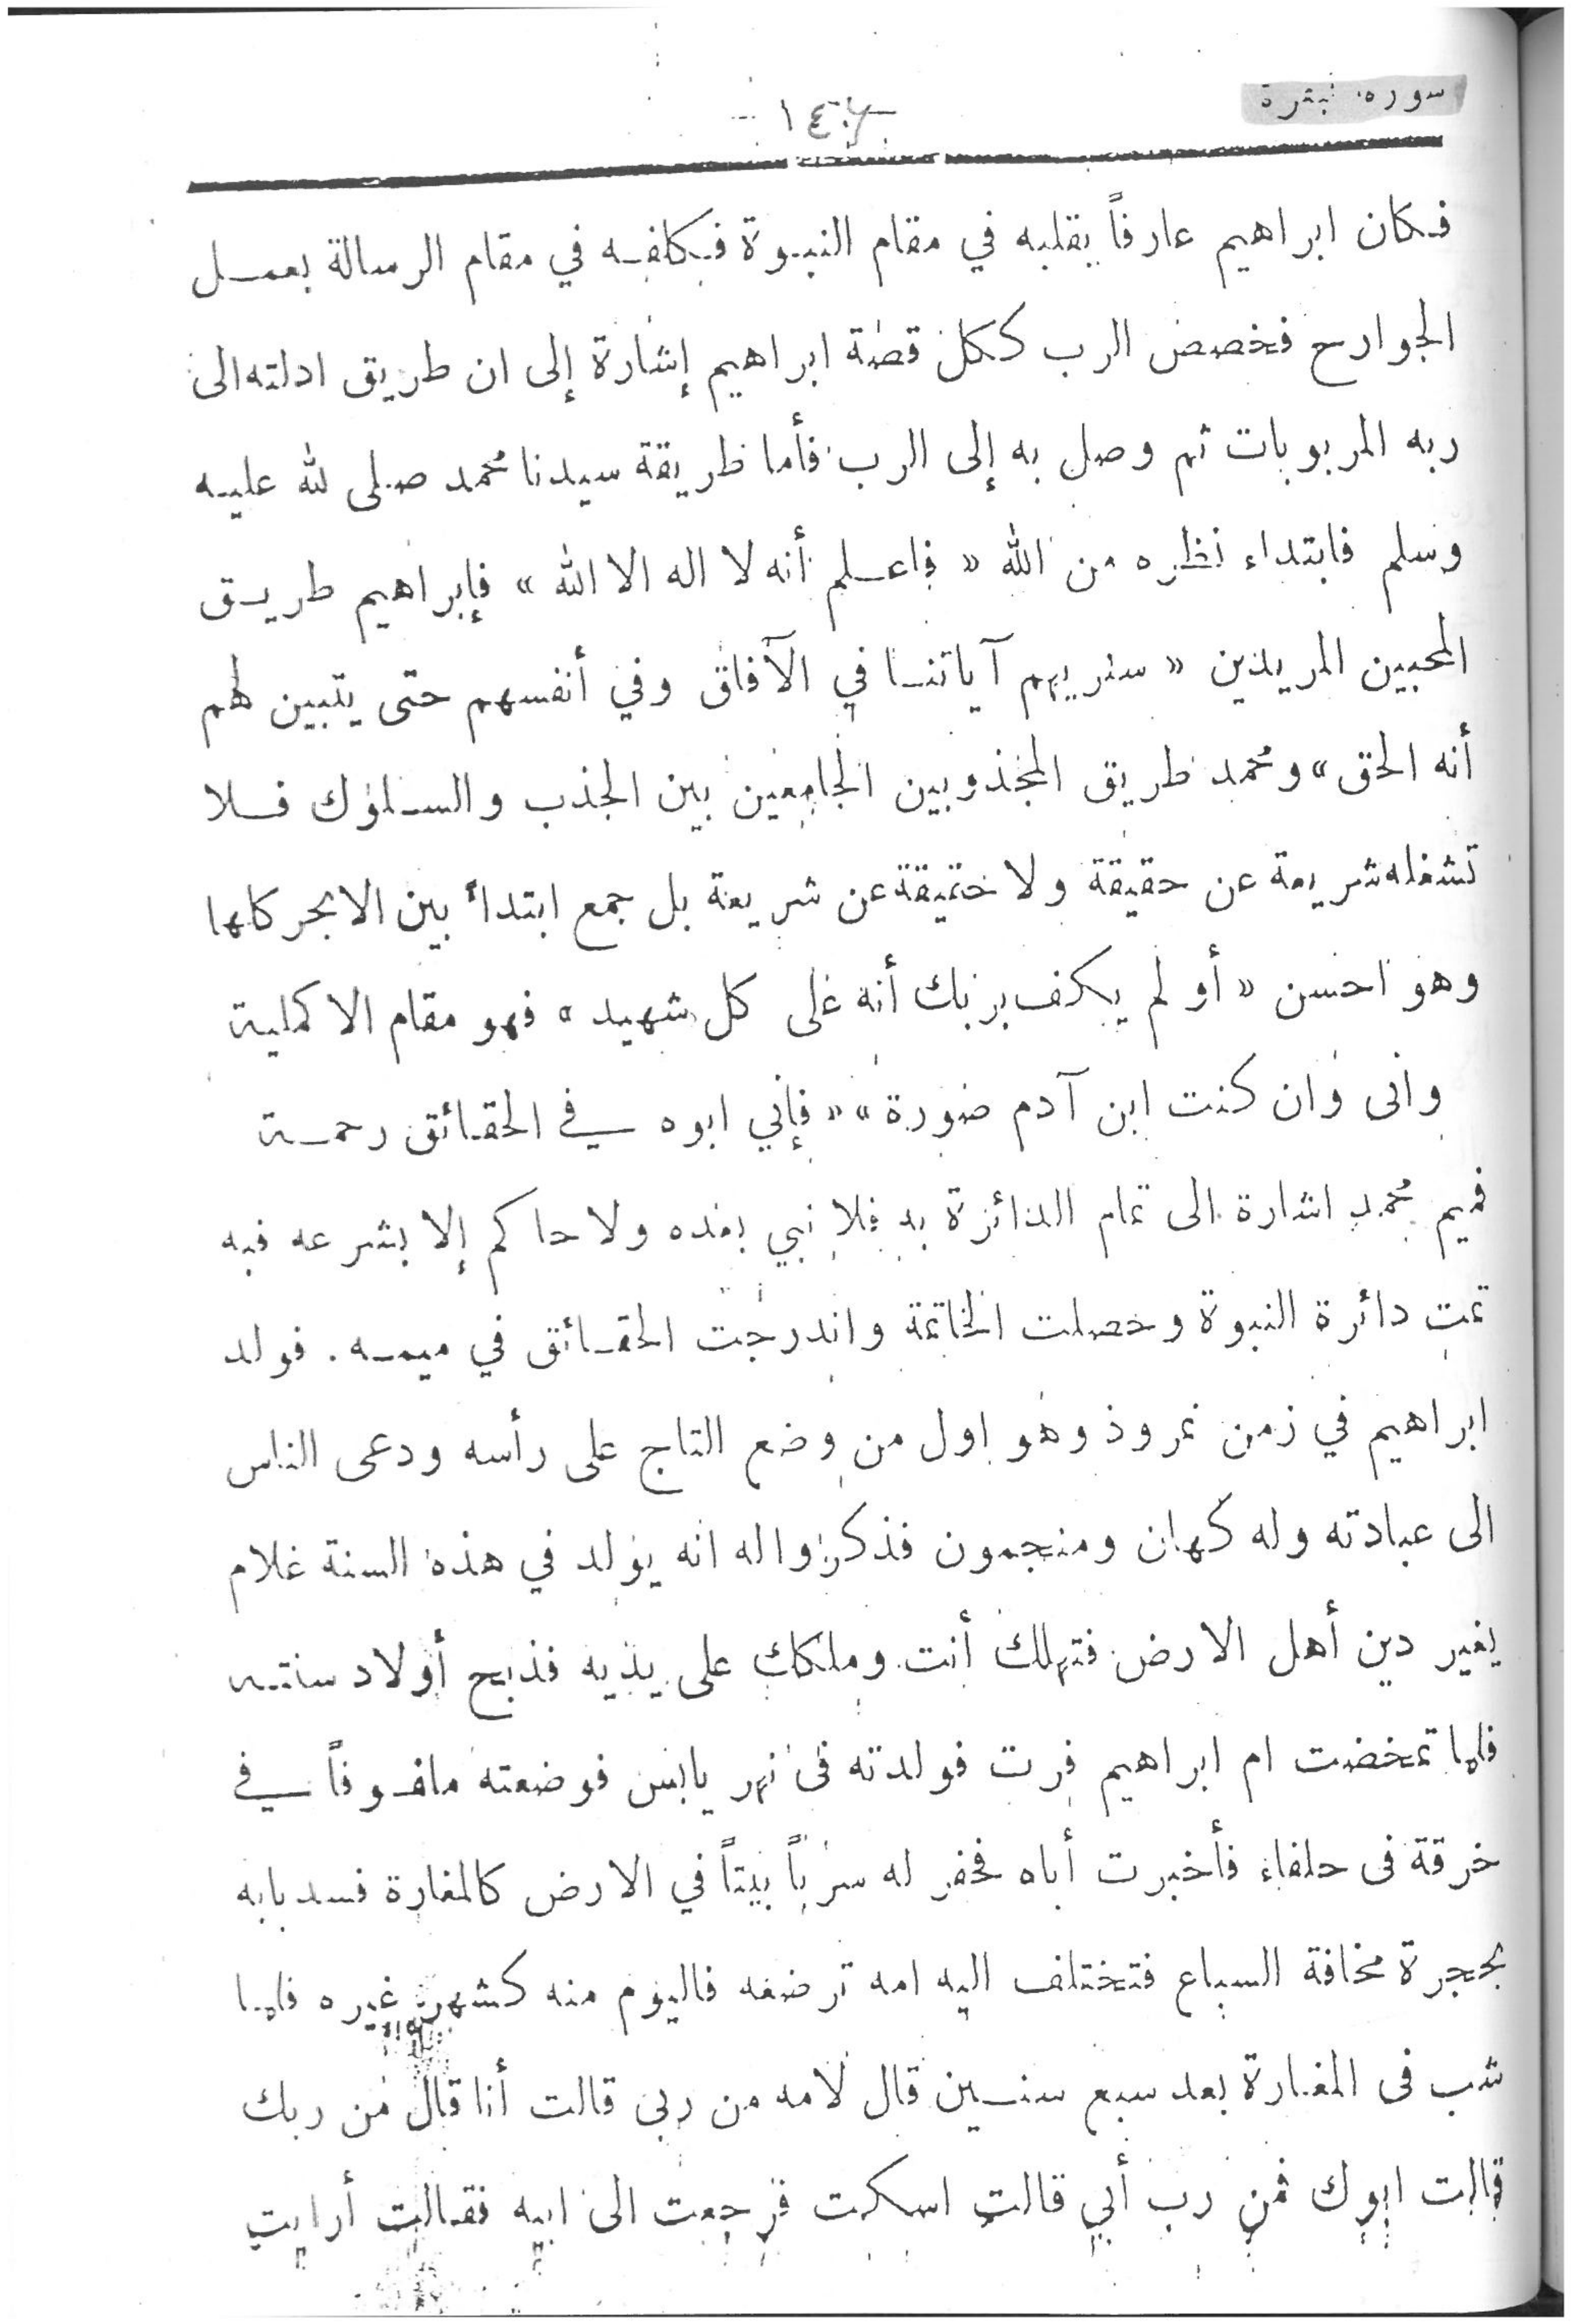 سورة بقرة
فكان ابراهيم عارفاً بقلبه في مقام النبوة فكلفه في مقام الرسالة بعمل
الجوارح فخصص الرب ككل قصة ابراهيم إشارة إلى ان طريق ادلته الى
ربه المربوبات ثم وصل به إلى الرب فأما طريقة سيدنا محمد صلى لله عليه
وسلم فابتداء نظره من الله « فاعلم أنه لا اله الا الله » فإبراهيم طريق
المحبين المريدين « سنريهم آياتنا في الآفاق وفي أنفسهم حتى يتبين لهم
أنه الحق » ومحمد طريق المجذوبين الجامعين بين الجذب والسلوك فلا
تشغله شريعة عن حقيقة ولا حقيقة عن شريعة بل جمع ابتداً بين الابحر كلها
وهو احسن « أو لم يكف بربك أنه على كل شهيد » فهو مقام الاكملية
وانى وان كنت ابن آدم صورة » « فإني ابوه في الحقائق رحمة
فميم محمد اشارة الى تمام الدائرة به فلا نبي بعده ولا حاكم إلا بشرعه فبه
تمت دائرة النبوة وحصلت الخاتمة واندرجت الحقائق في ميمه . فولد
ابراهيم في زمن نمروذ وهو اول من وضع التاج على رأسه ودعى الناس
الى عبادته وله كهان ومنجمون فذكروا له انه يولد في هذه السنة غلام
يغير دين أهل الارض فتهلك أنت وملكك على يديه فذبح أولاد سنته
فلما تمخضت ام ابراهيم فرت فولدته فى نهر يابس فوضعته ملفوفاً في
خرقة فى حلفاء فأخبرت أباه فحفر له سرباً بيتاً في الارض كالمغارة فسد بابه
بحجرة مخافة السباع فتختلف اليه امه ترضعه فاليوم منه كشهر غيره فلما
شب فى المغارة بعد سبع سنين قال لامه من ربى قالت أنا قال من ربك
قالت ابوك فمن رب أبي قالت اسكت فرجعت الى ابيه فقالت أرايت